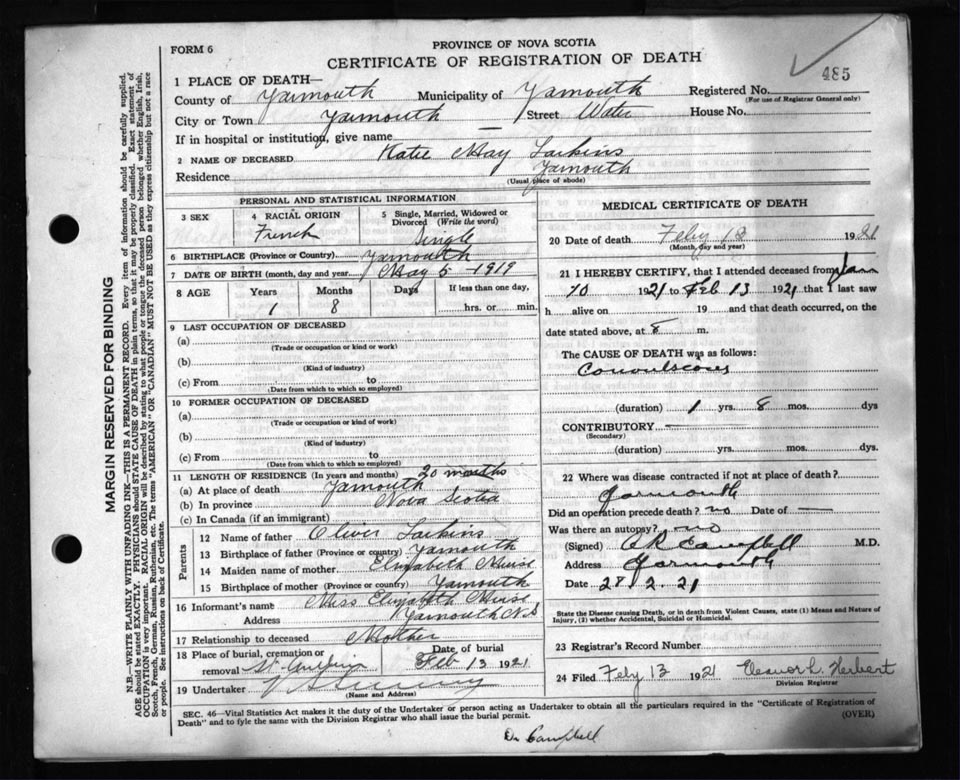 FORM 6
PROVINCE OF NOVA SCOTIA
CERTIFICATE OF REGISTRATION OF DEATH
485
1 PLACE OF DEATH—
County of Yarmouth Municipality of Yarmouth Registered No.
(For use of Registrar General only)
City or Town Yarmouth — Street Water House No.
If in hospital or institution, give name
2 NAME OF DECEASED Katie May Larkins
Residence Yarmouth
(Usual place of abode)
PERSONAL AND STATISTICAL INFORMATION
3 SEX
4 RACIAL ORIGIN French
5 Single, Married, Widowed or Divorced (Write the word) Single
6 BIRTHPLACE (Province or Country) Yarmouth
7 DATE OF BIRTH (month, day and year) May 5 - 1919
8 AGE Years Months Days If less than one day,
1 8 hrs. or min.
9 LAST OCCUPATION OF DECEASED
(a)
(Trade or occupation or kind or work)
(b)
(Kind of industry)
(c) From to
(Date from which to which so employed)
10 FORMER OCCUPATION OF DECEASED
(a)
(Trade or occupation or kind of work)
(b)
(Kind of industry)
(c) From to
(Date from which to which so employed)
11 LENGTH OF RESIDENCE (In years and months) 20 months
(a) At place of death Yarmouth
(b) In province Nova Scotia
(c) In Canada (if an immigrant)
Parents
12 Name of father Oliver Larkins
13 Birthplace of father (Province or country) Yarmouth
14 Maiden name of mother Elizabeth Muise
15 Birthplace of mother (Province or country) Yarmouth
16 Informant's name Miss Elizabeth Muise
Address Yarmouth N.S
17 Relationship to deceased Mother
18 Place of burial, cremation or removal Date of burial
Feb 13 1921
19 Undertaker
(Name and Address)
MEDICAL CERTIFICATE OF DEATH
20 Date of death Feby 1921
(Month, day and year)
21 I HEREBY CERTIFY, that I attended deceased from Jan
10 1921 to Feb 13 1921 that I last saw
h alive on 19 and that death occurred, on the
date stated above, at 8 m.
The CAUSE OF DEATH was as follows:
Convulsions
(duration) 1 yrs. 8 mos. dys
CONTRIBUTORY —
(Secondary)
(duration) yrs. mos. dys
22 Where was disease contracted if not at place of death?
Yarmouth
Did an operation precede death? no Date of —
Was there an autopsy? no
(Signed) Campbell M.D.
Address Yarmouth
Date 28.2.21
State the Disease causing Death, or in death from Violent Causes, state (1) Means and Nature of
Injury, (2) whether Accidental, Suicidal or Homicidal.
23 Registrar's Record Number
24 Filed Feby 13 1921 Eleanor L. Herbert
Division Registrar
SEC. 46—Vital Statistics Act makes it the duty of the Undertaker or person acting as Undertaker to obtain all the particulars required in the "Certificate of Registration of
Death" and to fyle the same with the Division Registrar who shall issue the burial permit.
(OVER)
Dr Campbell
MARGIN RESERVED FOR BINDING
N.B.—WRITE PLAINLY WITH UNFADING INK—THIS IS A PERMANENT RECORD. Every item of information should be carefully supplied.
AGE should be stated EXACTLY. PHYSICIANS should STATE CAUSE OF DEATH in plain terms, so that it may be properly classified. Exact statement of
OCCUPATION is very important. RACIAL ORIGIN will be described by stating to what people or tongue the deceased person belonged whether English, Irish,
Scotch, French, German, Russian, Ruthenian, etc. The terms "AMERICAN" OR "CANADIAN" MUST NOT BE USED as they express citizenship but not a race
or people. See instructions on back of Certificate.